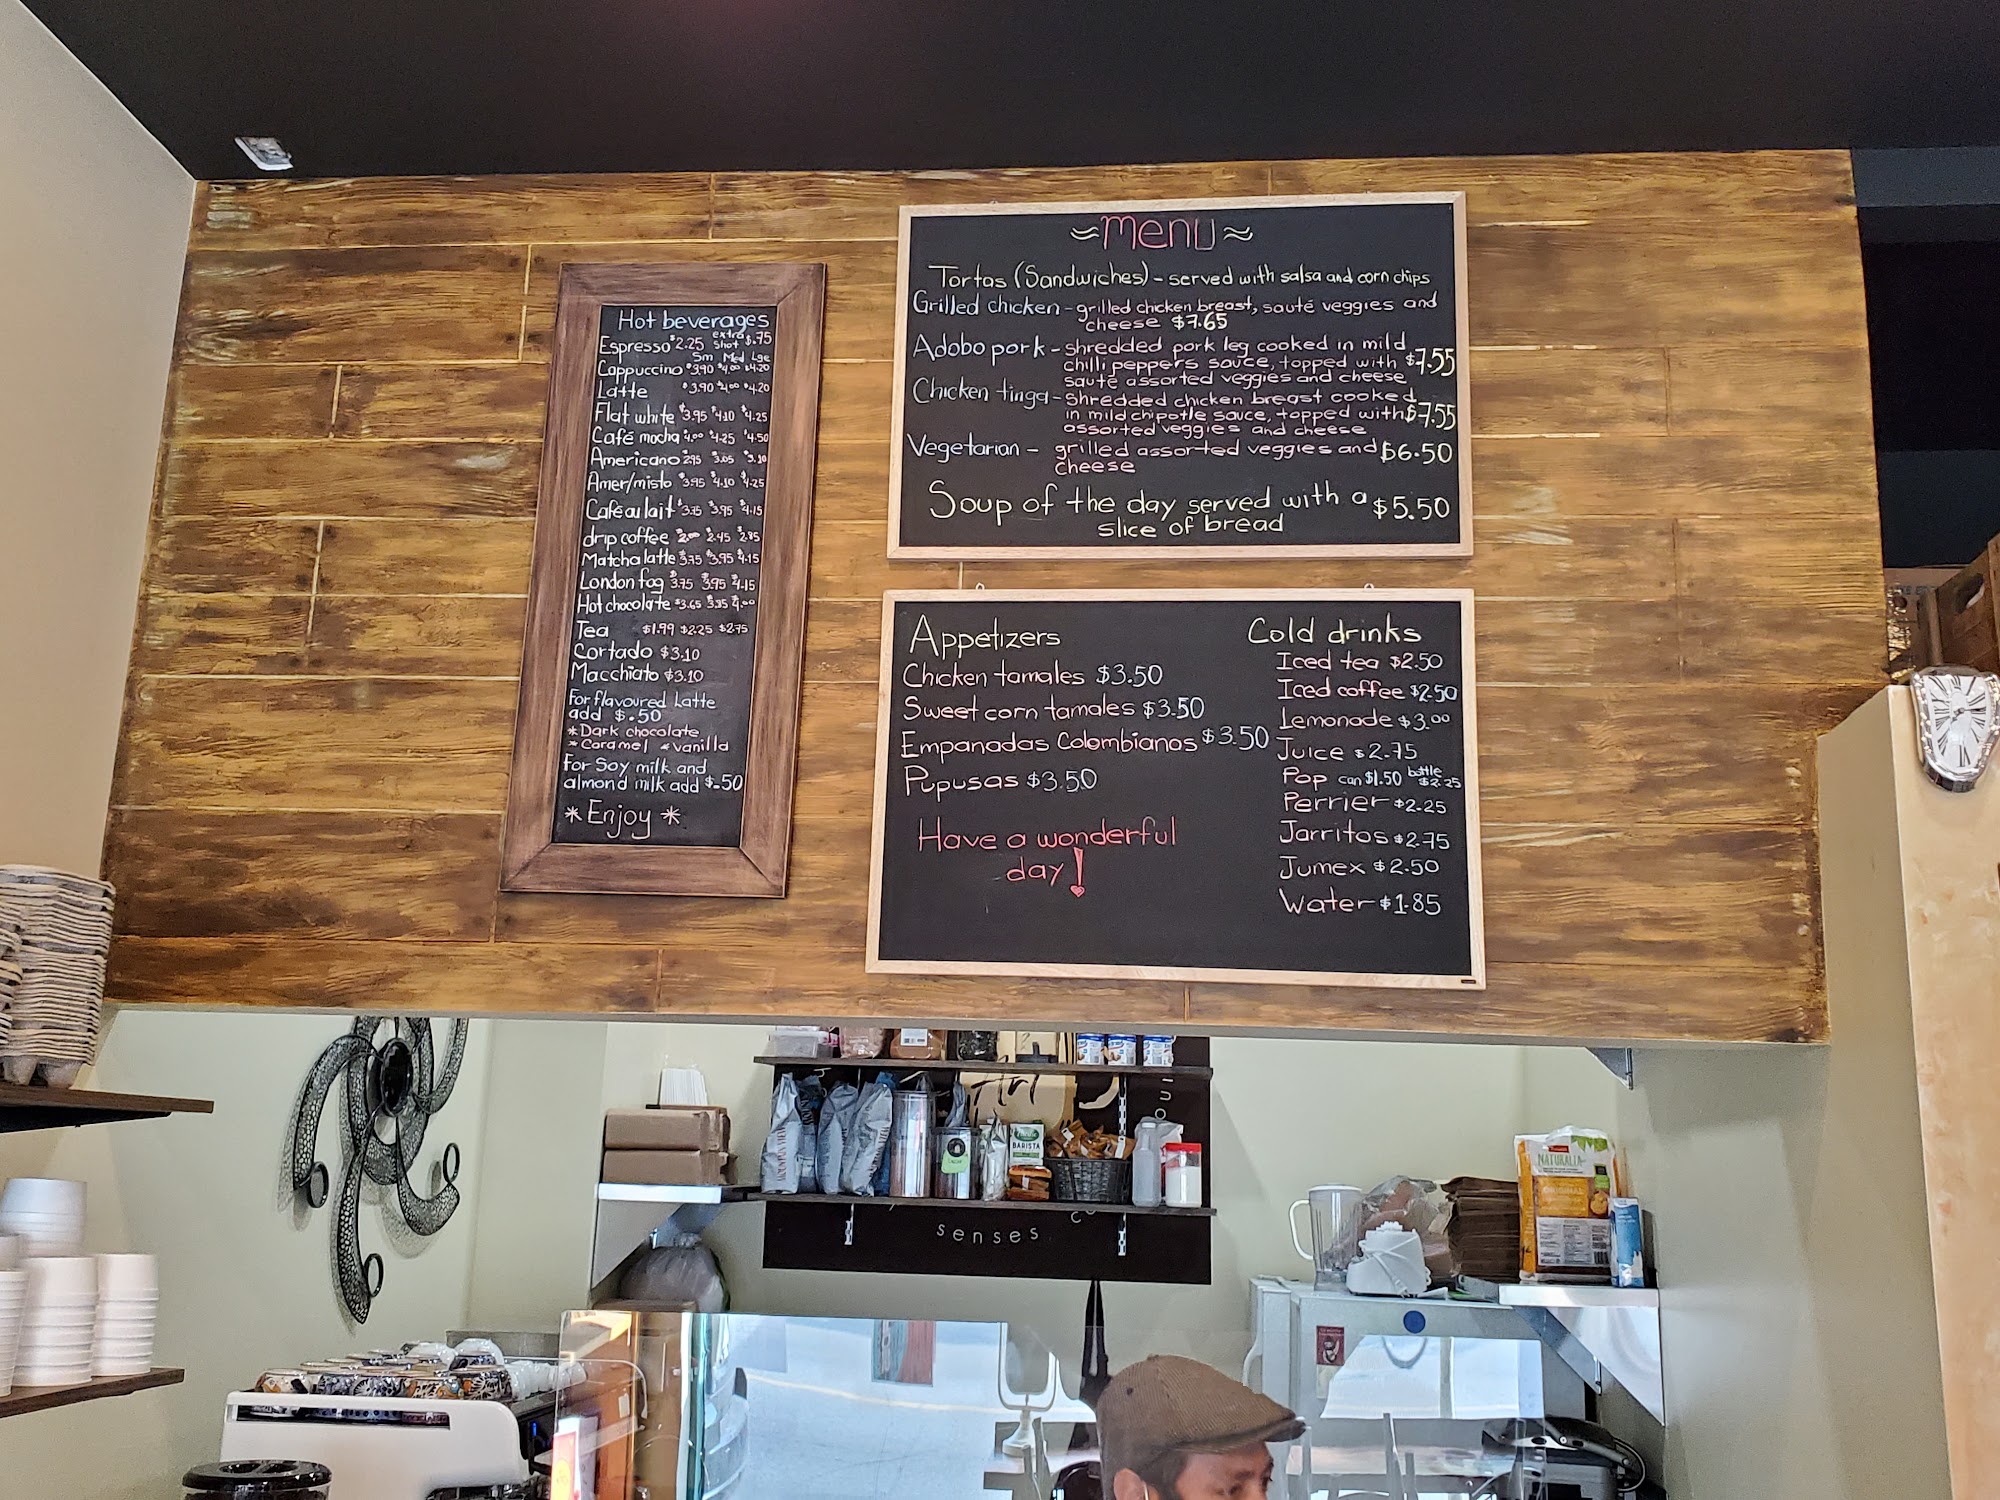 Hot beverages
Espresso $2.25 extra shot $.75
Sm Med Lge
Cappuccino $3.90 $4.00 $4.20
Latte $3.90 $4.00 $4.20
Flat white $3.95 $4.10 $4.25
Café mocha $4.00 $4.25 $4.50
Americano 2.95 $3.05 $3.10
Amer/misto $3.95 $4.10 $4.25
Café au lait $3.75 $3.95 $4.15
drip coffee 2.00 2.45 2.85
Matcha latte $3.75 $3.95 $4.15
London fog $3.75 $3.95 $4.15
Hot chocolate $3.65 3.85 4.00
Tea $1.99 $2.25 $2.75
Cortado $3.10
Macchiato $3.10
For flavoured Latte
add $.50
*Dark chocolate
*Caramel *vanilla
For Soy milk and
almond milk add $.50
*Enjoy*
≈Menu≈
Tortas (Sandwiches) - served with salsa and corn chips
Grilled chicken - grilled chicken breast, sauté veggies and
cheese $7.65
Adobo pork - shredded pork leg cooked in mild
chilli peppers sauce, topped with $7.55
sauté assorted veggies and cheese
Chicken tinga - shredded chicken breast cooked
in mild chipotle sauce, topped with $7.55
assorted veggies and cheese
Vegetarian - grilled assorted veggies and $6.50
cheese
Soup of the day served with a $5.50
slice of bread
Appetizers
Chicken tamales $3.50
Sweet corn tamales $3.50
Empanadas Colombianas $3.50
Pupusas $3.50
Have a wonderful
day!
Cold drinks
Iced tea $2.50
Iced coffee $2.50
Lemonade $3.00
Juice $2.75
Pop can $1.50 bottle $2.25
Perrier $2.25
Jarritos $2.75
Jumex $2.50
Water $1.85
Art
BARISTA
senses
NATURALIA
ORIGINAL